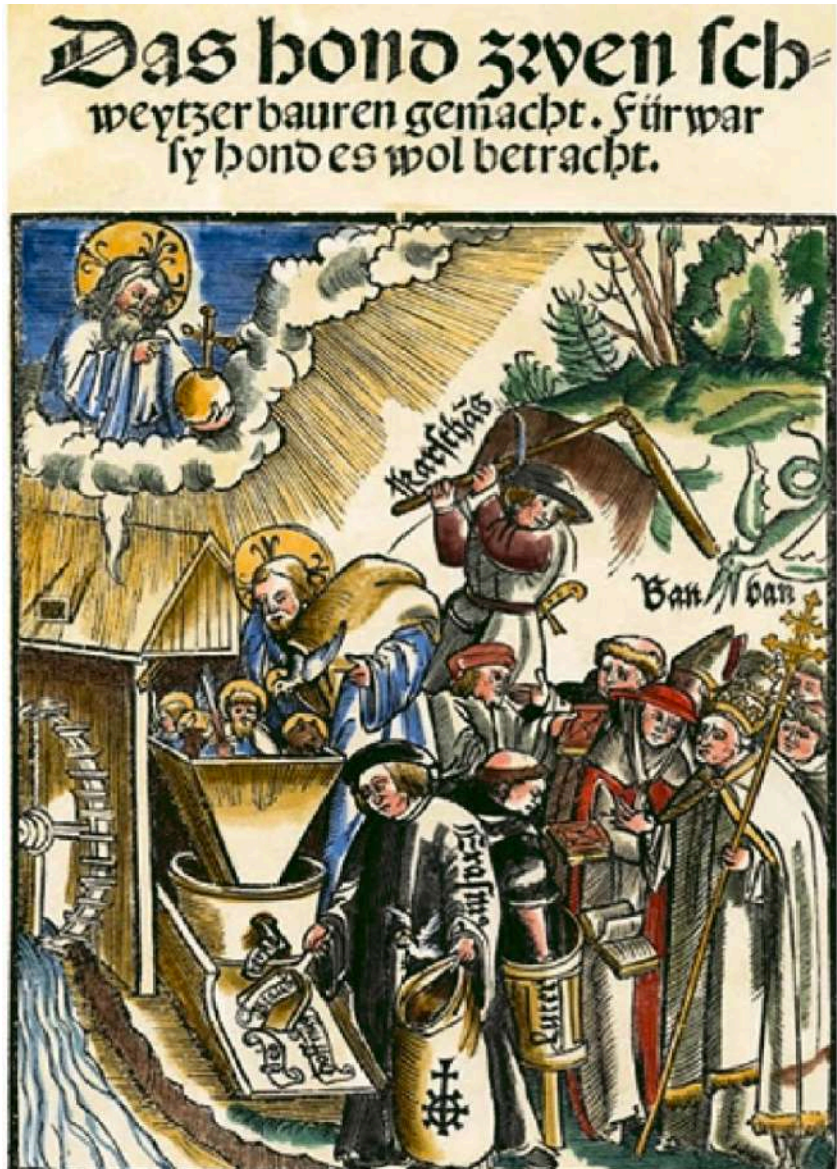 Das hond zwen sch-
weytzer bauren gemacht. Fürwar
sy hond es wol betracht.
Karsthãs
Ban ban
Erasmus